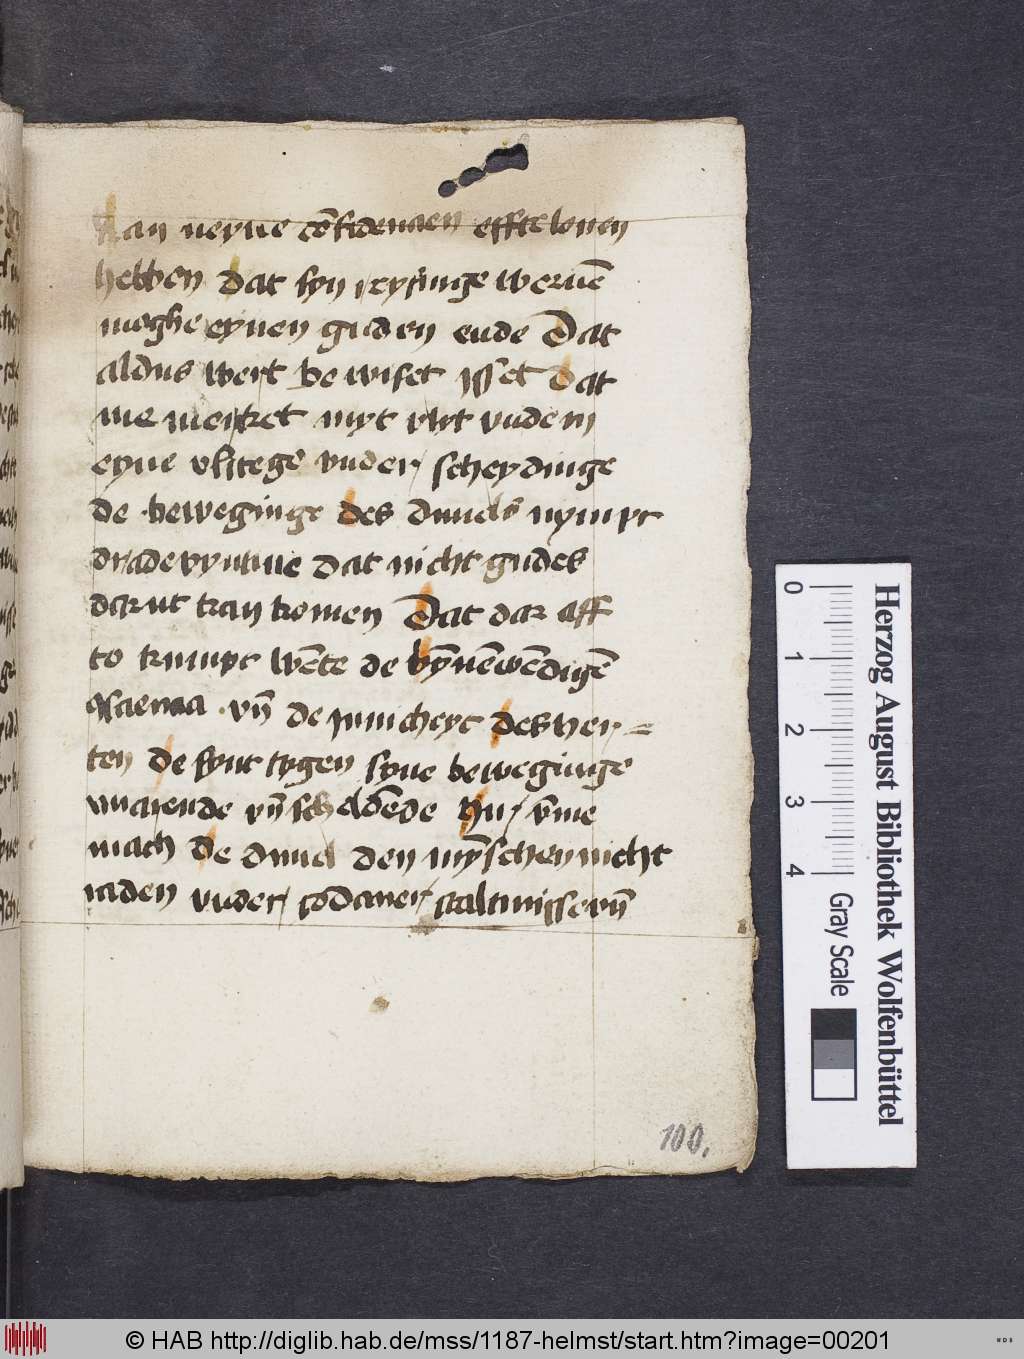 kan neyne cōfidencien effte louen
hebben dat syn reysinge weruē
moghe eynen guden ende Dat
aldus wert be wiset Isset dat
me merket myt vlyt vnde in
eyne vlitege vnder scheydinge
de beweginge des duuels nympt
drade vyntme dat nicht gudes
dar vt kan komen Dat dar aff
to kumpt wēte de bȳnēwēdigē
vn̄ de ynnicheyt des her=
ten de synt tegen syne beweginge
vn̄ scheldēde Nu vme
mach de duuel den mȳschen nicht
raden vnder sodaner staltnisse vn̄
100.
Herzog August Bibliothek Wolfenbüttel
0 1 2 3 4 Gray Scale
© HAB http://diglib.hab.de/mss/1187-helmst/start.htm?image=00201
WDB